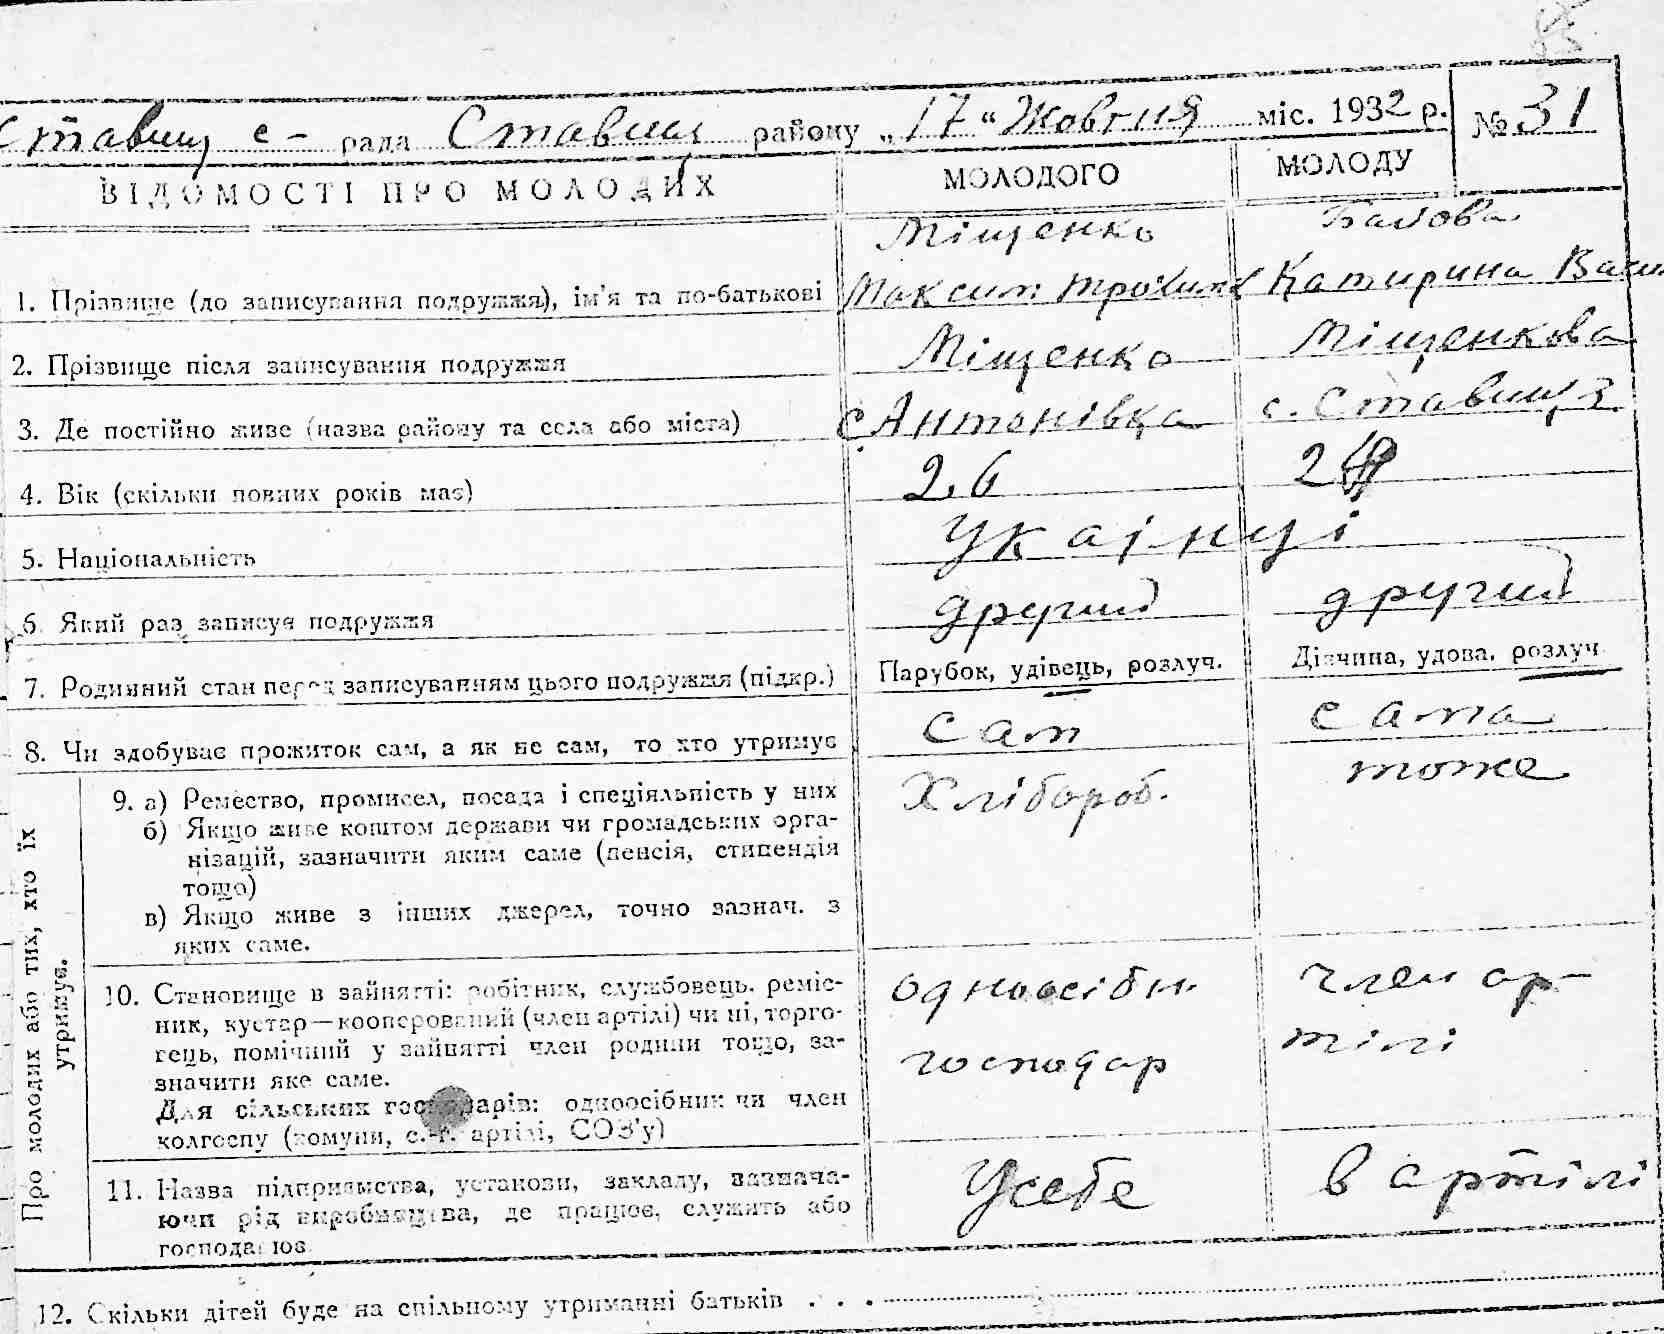 Ставищ с- рада Ставищ району „17“ Жовтня міс. 1932 р. № 31
ВІДОМОСТІ ПРО МОЛОДИХ МОЛОДОГО МОЛОДУ
Міщенко
1. Прізвище (до записування подружжя), ім'я та по-батькові Максим Трохим Катирина Васил
2. Прізвище після записування подружжя Міщенко Міщенкова
3. Де постійно живе (назва району та села або міста) с Антонівка с. Ставищ
4. Вік (скільки повних років має) 26 2
5. Національність Украінці
6. Який раз записує подружжя другий другий
7. Родинний стан перед записуванням цього подружжя (підкр.) Парубок, удівець, розлуч. Дівчина, удова, розлуч.
8. Чи здобуває прожиток сам, а як не сам, то хто утримує сам сама
Про молодих або тих, хто їх утримує.
9. а) Ремество, промисел, посада і спеціяльність у них Хлібороб. тоже
б) Якщо живе коштом держави чи громадських орга-
нізацій, зазначити яким саме (пенсія, стипендія
тощо)
в) Якщо живе з інших джерел, точно зазнач. з
яких саме.
10. Становище в зайнятті: робітник, службовець, реміс- одноосібн. член ар-
ник, кустар—кооперований (член артілі) чи ні, торго-
вець, помічний у зайнятті член родини тощо, за- господар тілі
значити яке саме.
Для сільських господарів: одноосібник чи член
колгоспу (комуни, с.-г. артілі, СОЗ'у)
11. Назва підприємства, установи, закладу, зазнача- Усебе в артілі
ючи рід виробництва, де працює, служить або
господарює
12. Скільки дітей буде на спільному утриманні батьків . . .